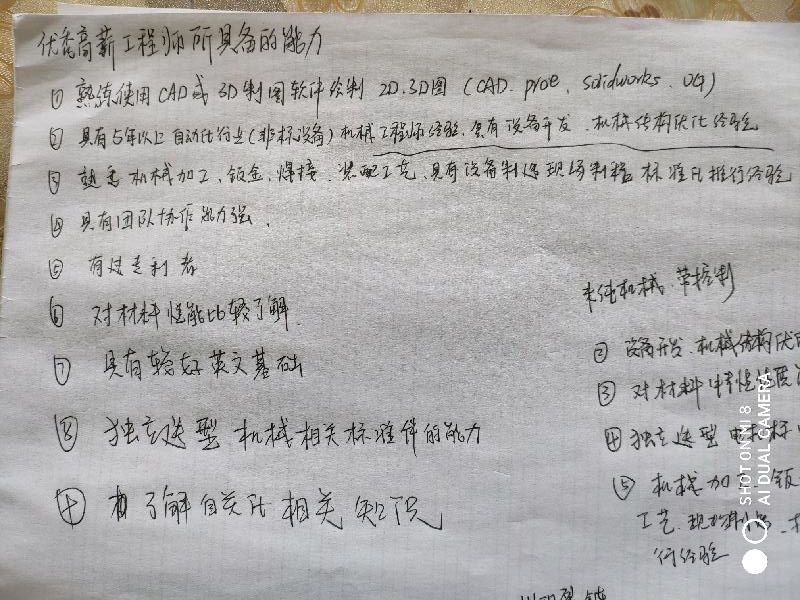 优秀高薪工程师所具备的能力
① 熟练使用CAD或3D制图软件绘制2D.3D图(CAD.proe、solidworks、UG)
② 具有5年以上自动化行业(非标设备)机械工程师经验,具有设备开发、机械结构优化经验
③ 熟悉机械加工,钣金,焊接、装配工艺,具有设备制造现场制程标准化推行经验
④ 具有团队协作能力强、
⑤ 有过专利者
⑥ 对材料性能比较了解
⑦ 具有较好英文基础
⑧ 独立选型机械相关标准件的能力
⑨ 了解自关化相关知识
纯机械 带控制
② 设备开发、机械结构优
③ 对材料
④ 独立选型
⑤ 机械加 钣
工艺.现
行经验
SHOT ON MI 8
AI DUAL CAMERA